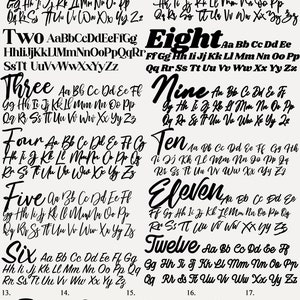 Two Aa Bb Cc Dd Ee Ff Gg
HhIiJjKkLl MmNnOoPpQqRr
SsTt UuVvWwXxYyZz
Three Aa Bb Cc Dd Ee Ff
Gg Hh Ii Jj Kk Ll Mm Nn Oo Pp
Qq Rr Ss Tt Uu Vv Ww Xx Yy Zz
Four Aa Bb Cc Dd Ee Ff Gg
Hh Ii Jj Kk Ll Mm Nn Oo Pp Qq
Rr Ss Tt Uu Vv Ww Xx Yy Zz
Five Aa Bb Cc Dd Ee Ff
Gg Hh Ii Jj Kk Ll Mm Nn Oo Pp
Qq Rr Ss Tt Uu Vv Ww Xx Yy Zz
Six Aa Bb Cc Dd Ee Ff Gg
Hh Ii Jj Kk Ll Mm Nn Oo Pp Qq
Rr Ss Tt Uu Vv Ww Xx Yy Zz
Eight Aa Bb Cc Dd Ee
Ff Gg Hh Ii Jj Kk Ll Mm Nn Oo Pp
Qq Rr Ss Tt Uu Vv Ww Xx Yy Zz
Nine Aa Bb Cc Dd Ee Ff
Gg Hh Ii Jj Kk Ll Mm Nn Oo Pp
Qq Rr Ss Tt Uu Vv Ww Xx Yy Zz
Ten Aa Bb Cc Dd Ee Ff Gg
Hh Ii Jj Kk Ll Mm Nn Oo Pp Qq
Rr Ss Tt Uu Vv Ww Xx Yy Zz
Eleven Aa Bb Cc Dd Ee
Ff Gg Hh Ii Jj Kk Ll Mm Nn Oo Pp
Qq Rr Ss Tt Uu Vv Ww Xx Yy Zz
Twelve Aa Bb Cc Dd Ee Ff
Gg Hh Ii Jj Kk Ll Mm Nn Oo Pp
Qq Rr Ss Tt Uu Vv Ww Xx Yy Zz
13. 14. 15. 16. 17.